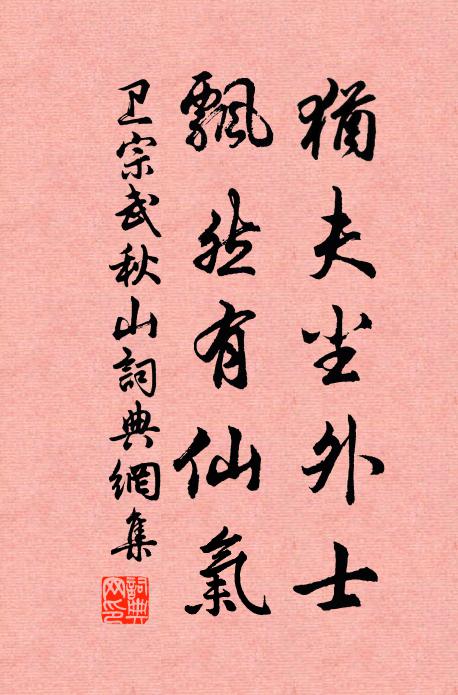 猶夫尘外士
飄然有仙氣
卫宗武秋山詞典網集
詞典
网印